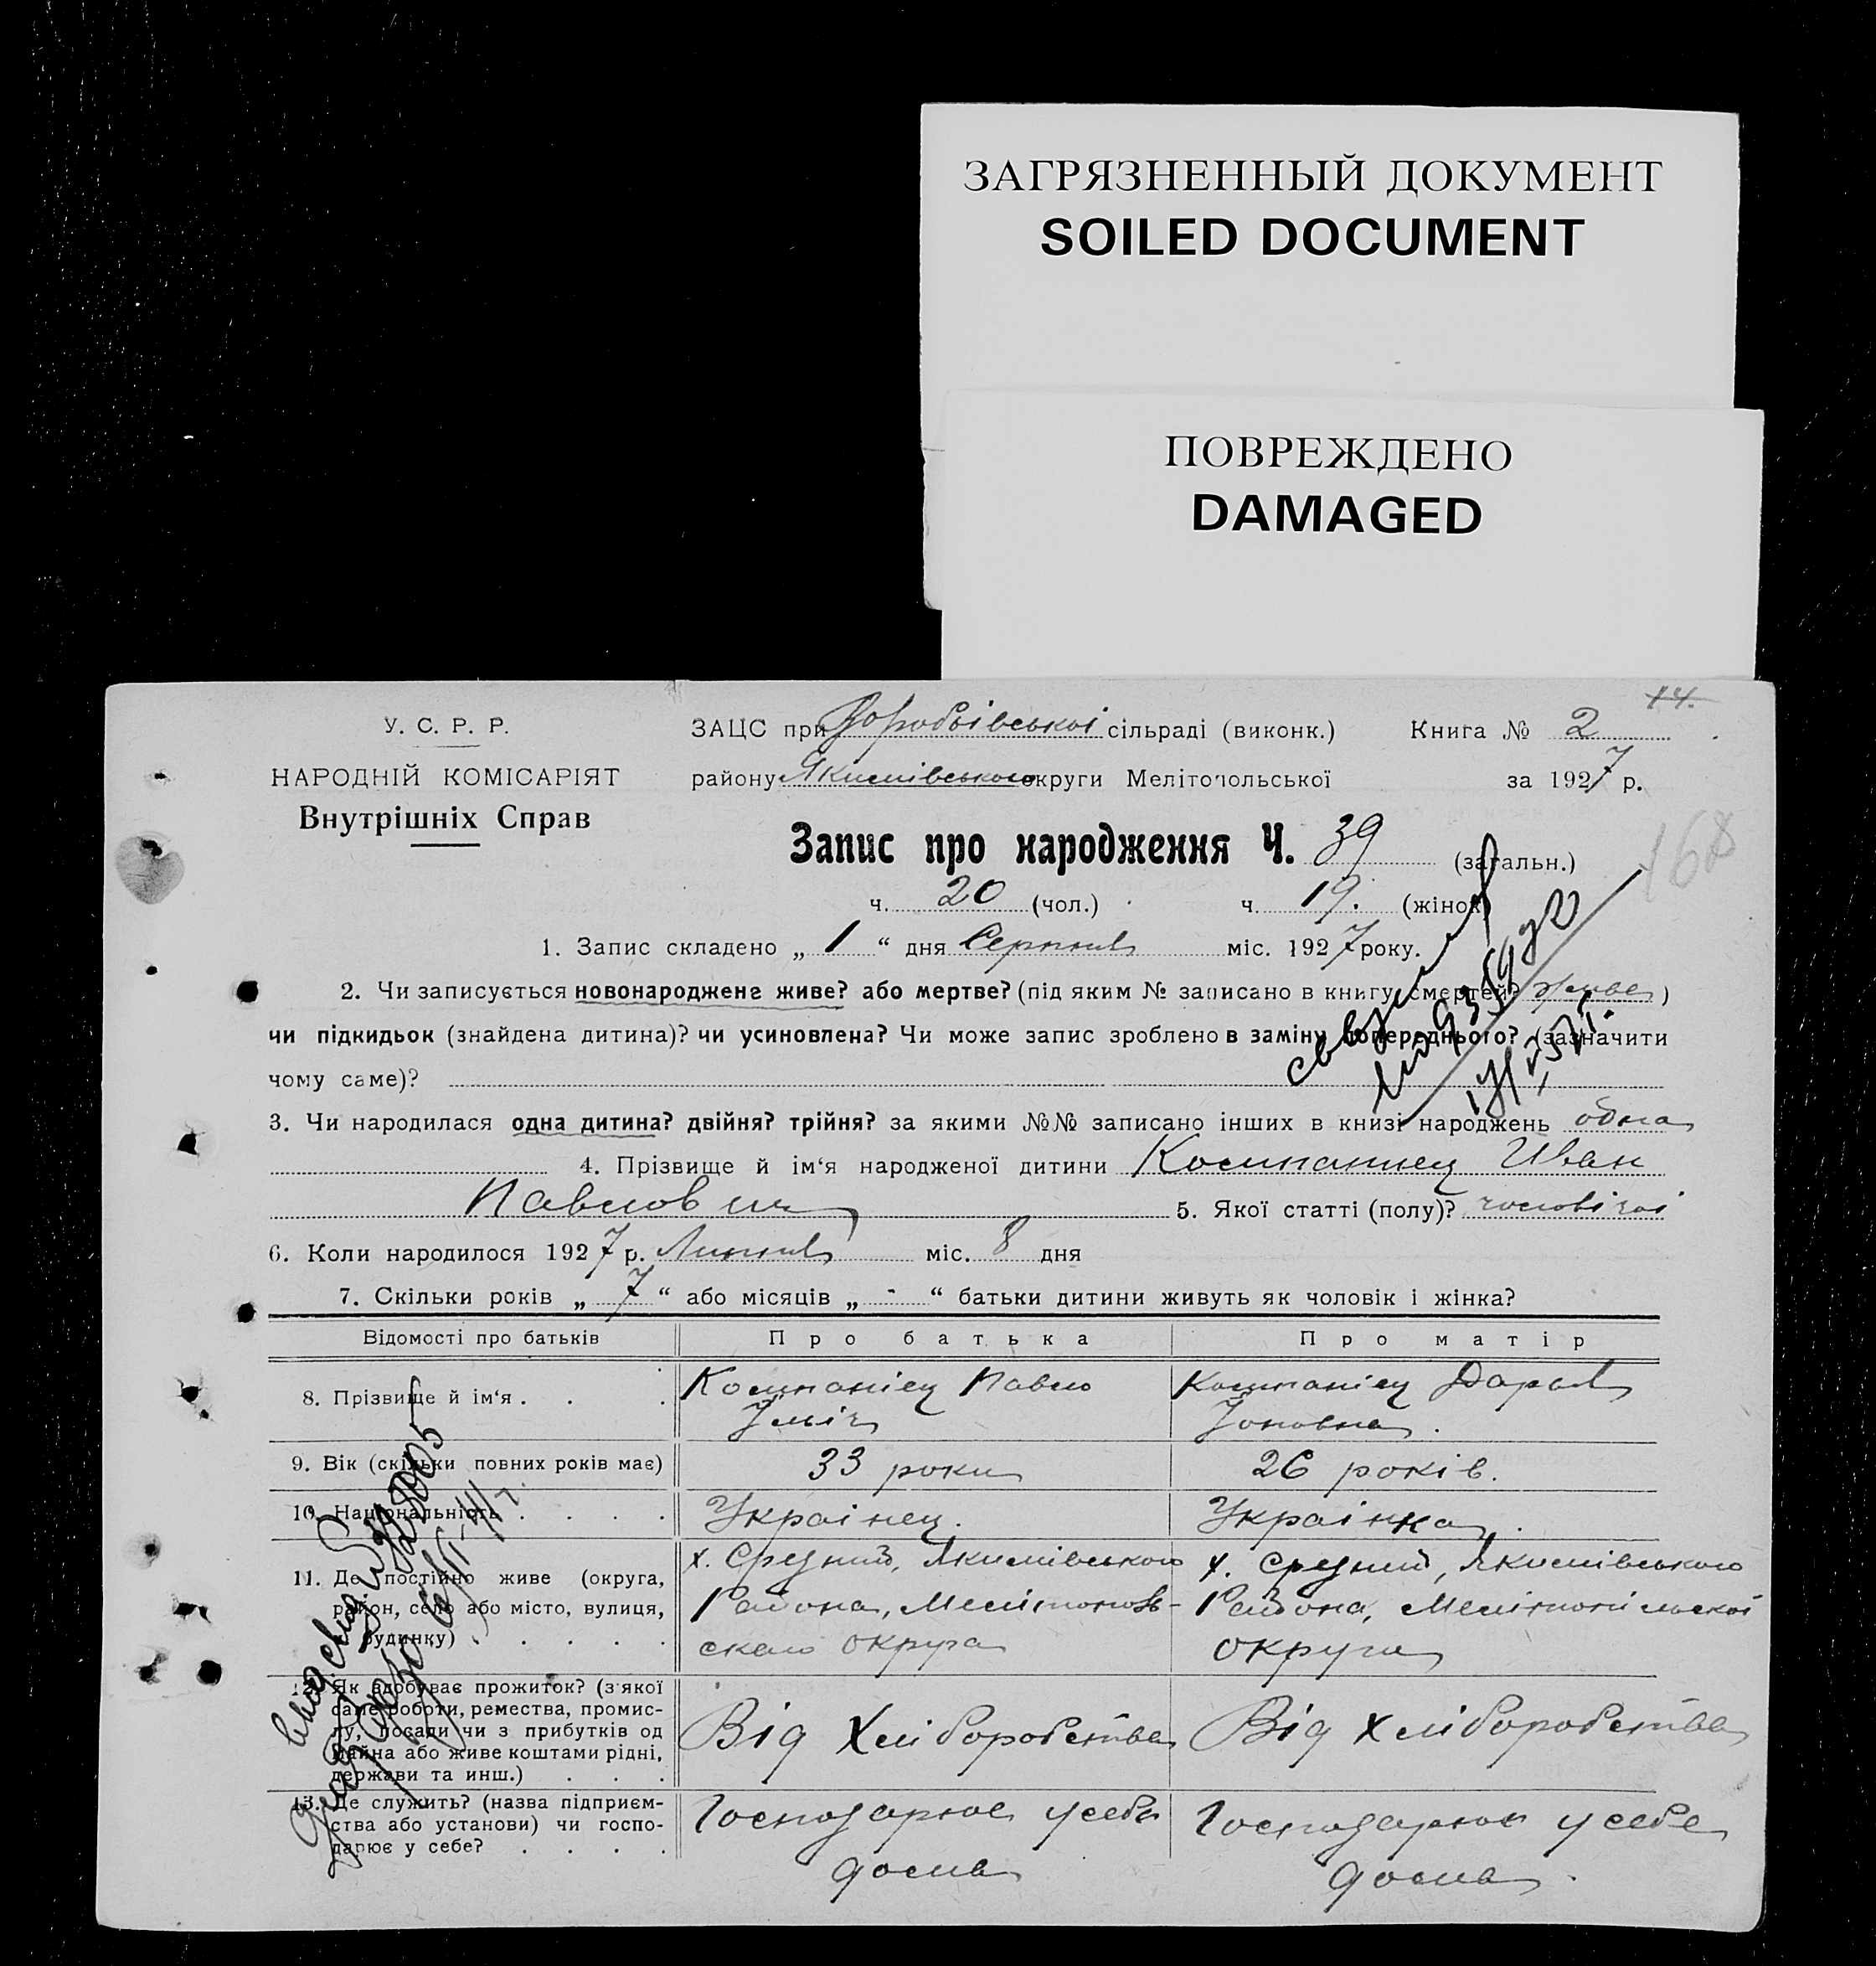 ЗАГРЯЗНЕННЫЙ ДОКУМЕНТ
SOILED DOCUMENT
ПОВРЕЖДЕНО
DAMAGED
14.
У. С. Р. Р.
НАРОДНІЙ КОМІСАРІЯТ
Внутрішніх Справ
ЗАЦС при Воробьівськоі сільраді (виконк.) Книга № 2
району Якимівського округи Мелітопольської за 1927 р.
Запис про народження Ч. 39 (загальн.)
168
ч. 20 (чол.) ч. 19. (жінок)
1. Запис складено „ 1 “ дня Серпня міс. 1927 року.
2. Чи записується новонароджене живе? або мертве? (під яким № записано в книгу смертей? живе)
чи підкидьок (знайдена дитина)? чи усиновлена? Чи може запис зроблено в заміну попереднього? (зазначити
чому саме)?
3. Чи народилася одна дитина? двійня? трійня? за якими №№ записано інших в книзі народжень одна
4. Прізвище й ім‘я народженої дитини Компаниец Иван
Павлович 5. Якої статті (полу)? чоловічоі
6. Коли народилося 1927 р. Липня міс. 8 дня
7. Скільки років „ 7 “ або місяців „ - “ батьки дитини живуть як чоловік і жінка?
Відомості про батьків Про батька Про матір
8. Прізвище й ім‘я . . . Компаніец Павло Компаніец Дарья
Ільіч Іоновна.
9. Вік (скільки повних років має) 33 роки 26 років.
10. Національність . . . . Украінец. Украінка.
11. Де постійно живе (округа, х. Средний, Якимівського х. Средний, Якимівського
район, село або місто, вулиця, Района, Мелітополь- Района, Мелітопільскоі
й будинку) . . . . . ского округа округи
12. Як здобуває прожиток? (з якої
саме роботи, ремества, промис-
лу, посади чи з прибутків од Від Хліборобства Від Хліборобства
майна або живе коштами рідні,
держави та инш.) . . .
13. Де служить? (назва підприєм- Господарює у себе Господарює у себе
ства або установи) чи госпо-
дарює у себе? . . . . дома дома.